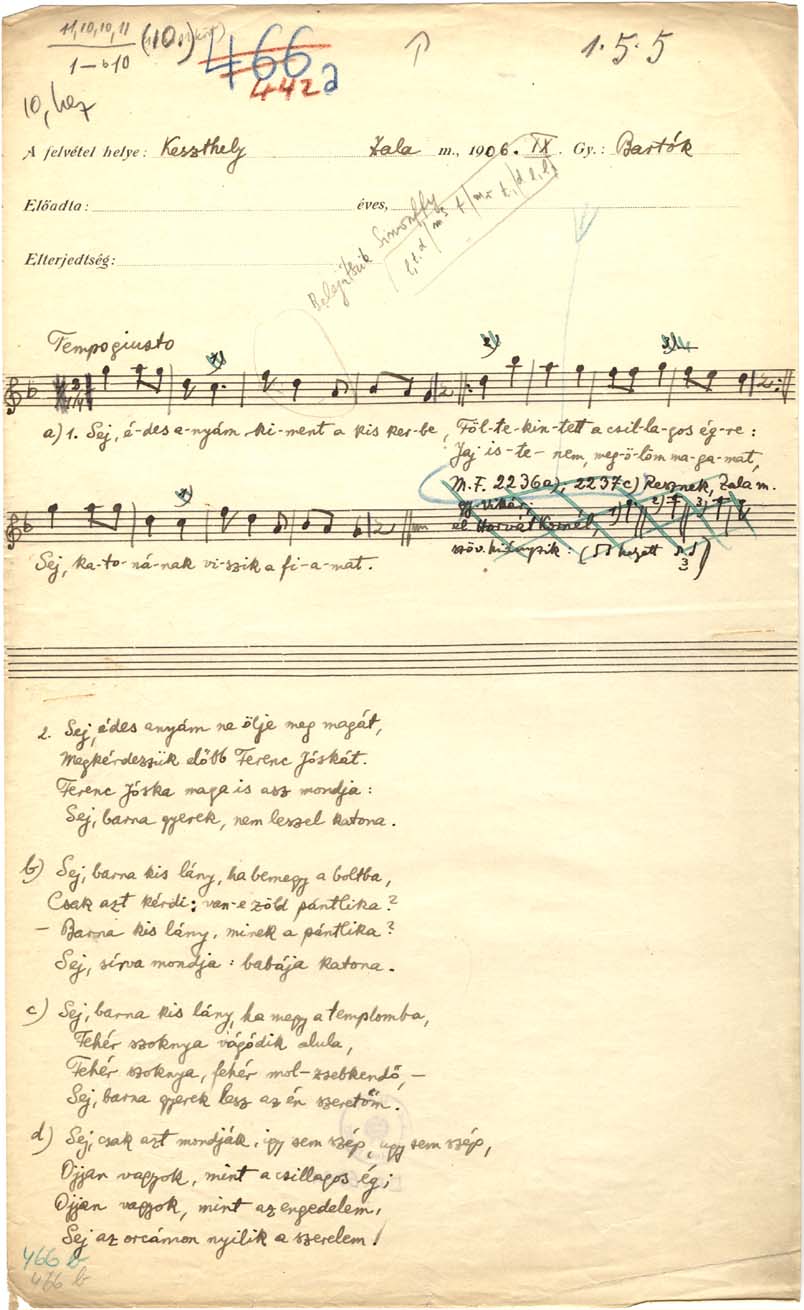 11, 10, 10, 11
(10.)
466
442
a
1 — b10
1. 5. 5
10, hez
A felvétel helye: Keszthely Zala m., 1906. IX. Gy.: Bartók
Előadta: éves,
Elterjedtség:
Simonffy
Tempo giusto
a) 1. Sej, é-des a-nyám ki-ment a kis ker-be, Föl-te-kin-tett a csil-la-gos ég-re:
Jaj is-te-nem, meg-ö-löm ma-ga-mat,
M.F. 2236a), 2237c) Resznek, Zala m.
gy. Vikár,
szöv. hiányzik:
Sej, ka-to-ná-nak vi-szik a fi-a-mat.
2. Sej, édes anyám ne ölje meg magát,
Megkérdezzük előbb Ferenc Jóskát.
Ferenc Jóska maga is asz mondja:
Sej, barna gyerek, nem leszel katona.
b) Sej, barna kis lány, ha bemegy a boltba,
Csak azt kérdi: van-e zöld pántlika?
— Barna kis lány, minek a pántlika?
Sej, sírva mondja: babája katona.
c) Sej, barna kis lány, ha megy a templomba,
Fehér szoknya vágódik alula,
Fehér szoknya, fehér mol-zsebkendő, —
Sej, barna gyerek lesz az én szeretőm.
d) Sej, csak azt mondják, igy sem szép, ugy sem szép,
Ojjan vagyok, mint a csillagos ég;
Ojjan vagyok, mint az engedelem,
Sej az orcámon nyilik a szerelem!
466 b
466 b